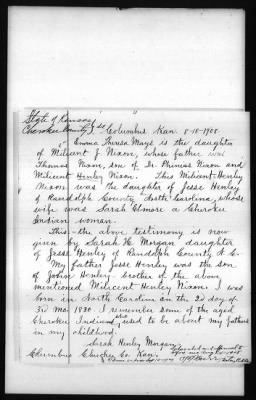 State of Kansas
Cherokee County } ss Columbus Kan. 8-18-1908.
Emma Theresa Mays is the daughter
of Milicent J. Nixon, whose father was
Thomas Nixon, son of Dr. Phineas Nixon and
Milicent Henley Nixon. This Milicent Henley
Nixon was the daughter of Jesse Henley
of Randolph County North Carolina, whose
wife was Sarah Elmore a Cherokee
Indian woman.
This the above testimony is now
given by Sarah H. Morgan daughter
of Jesse Henley of Randolph County N. C.
My father Jesse Henley was the son
of John Henley brother of the above
mentioned Milicent Henley Nixon. I was
born in North Carolina on the 2d day of
3d Mo. 1830. I remember some of the aged
Cherokee Indians who used to be about my fathers
in my childhood.
Sarah Henley Morgan
Columbus Cherokee Co. Kan.
Subscribed and affirmed to